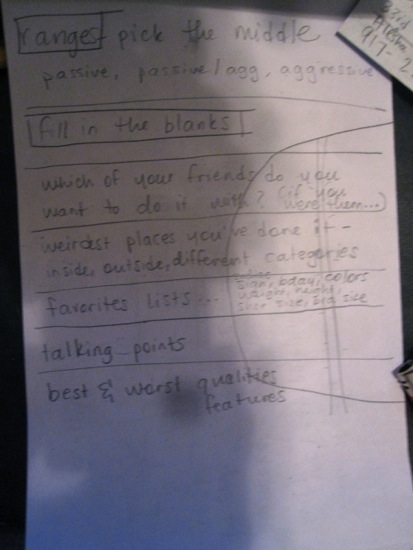 ranges pick the middle
passive, passive/agg, aggressive
fill in the blanks
which of your friends do you
want to do it with? (if you
were them...)
weirdest places you've done it -
inside, outside, different categories
favorites lists...
sign, bday, colors
weight, height,
shoe size, size
talking points
best & worst qualities
features
917-2